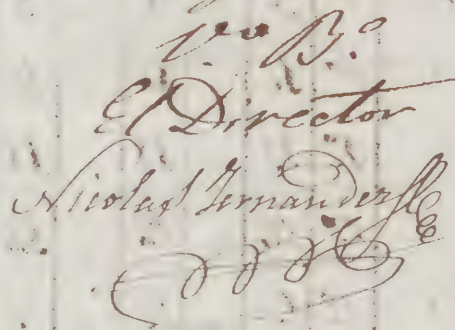 V.º B.º
El Director
Nicolas Fernandez